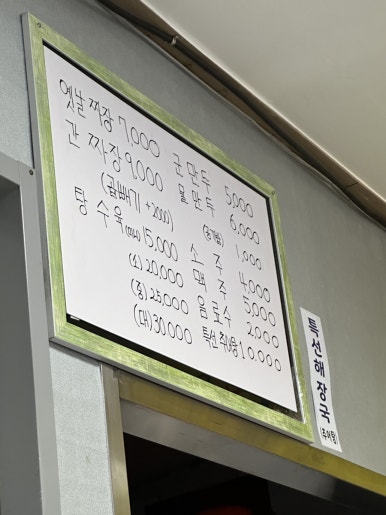 옛날짜장 7,000
간짜장 9,000
(곱빼기 +2000)
탕수육(미니) 15,000
(소) 20,000
(중) 25,000
(대) 30,000
군만두 5,000
물만두 6,000
(공기밥) 1,000
소주 4,000
맥주 5,000
음료수 2,000
특선 10,000
특선해장국